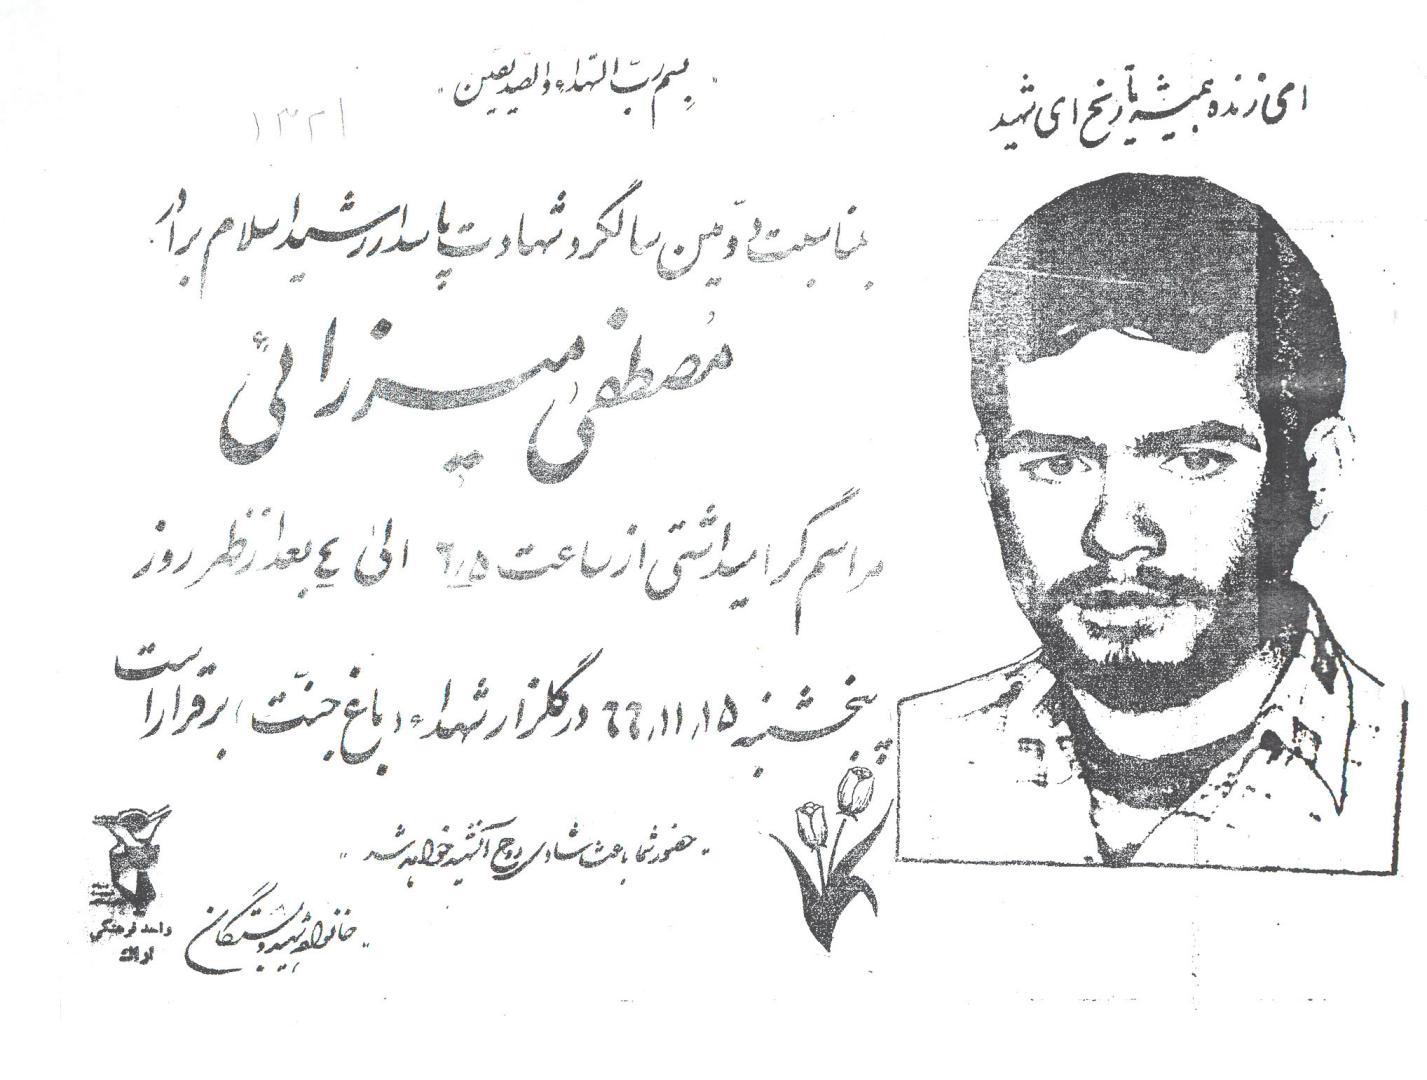 بسم رب الشهداء والصدیقین
ای زنده همیشه تاریخ ای شهید
۱۳۲۱
بمناسبت دوّمین سالگرد شهادت پاسدار رشید اسلام برادر
مُصطفی میرزائی
مراسم گرامیداشتی از ساعت ۲٫۵ الی ٤ بعدازظهر روز
پنجشنبه ۶۶٫۱۱٫۱۵ در گلزار شهداء (باغ جنّت) برقرار است
حضور شما باعث شادی روح آن شهید خواهد شد
خانواده شهید و بستگان
واحد فرهنگی
اراک